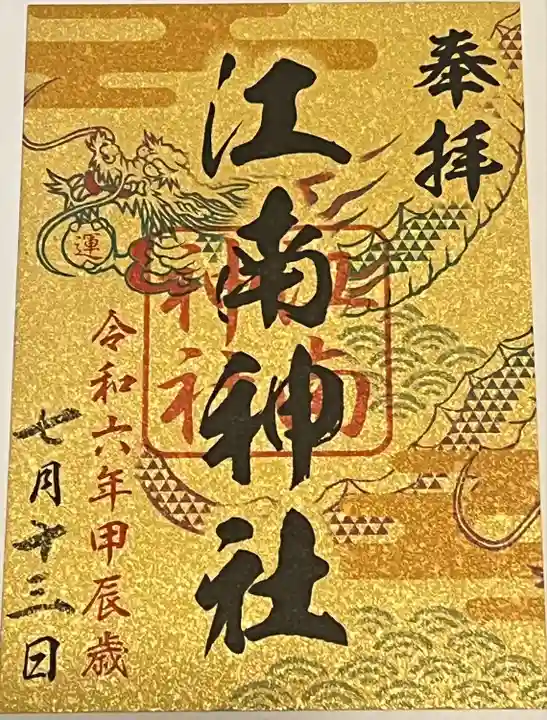 奉拝
江南神社
江南神社
運
令和六年甲辰歳
七月十三日